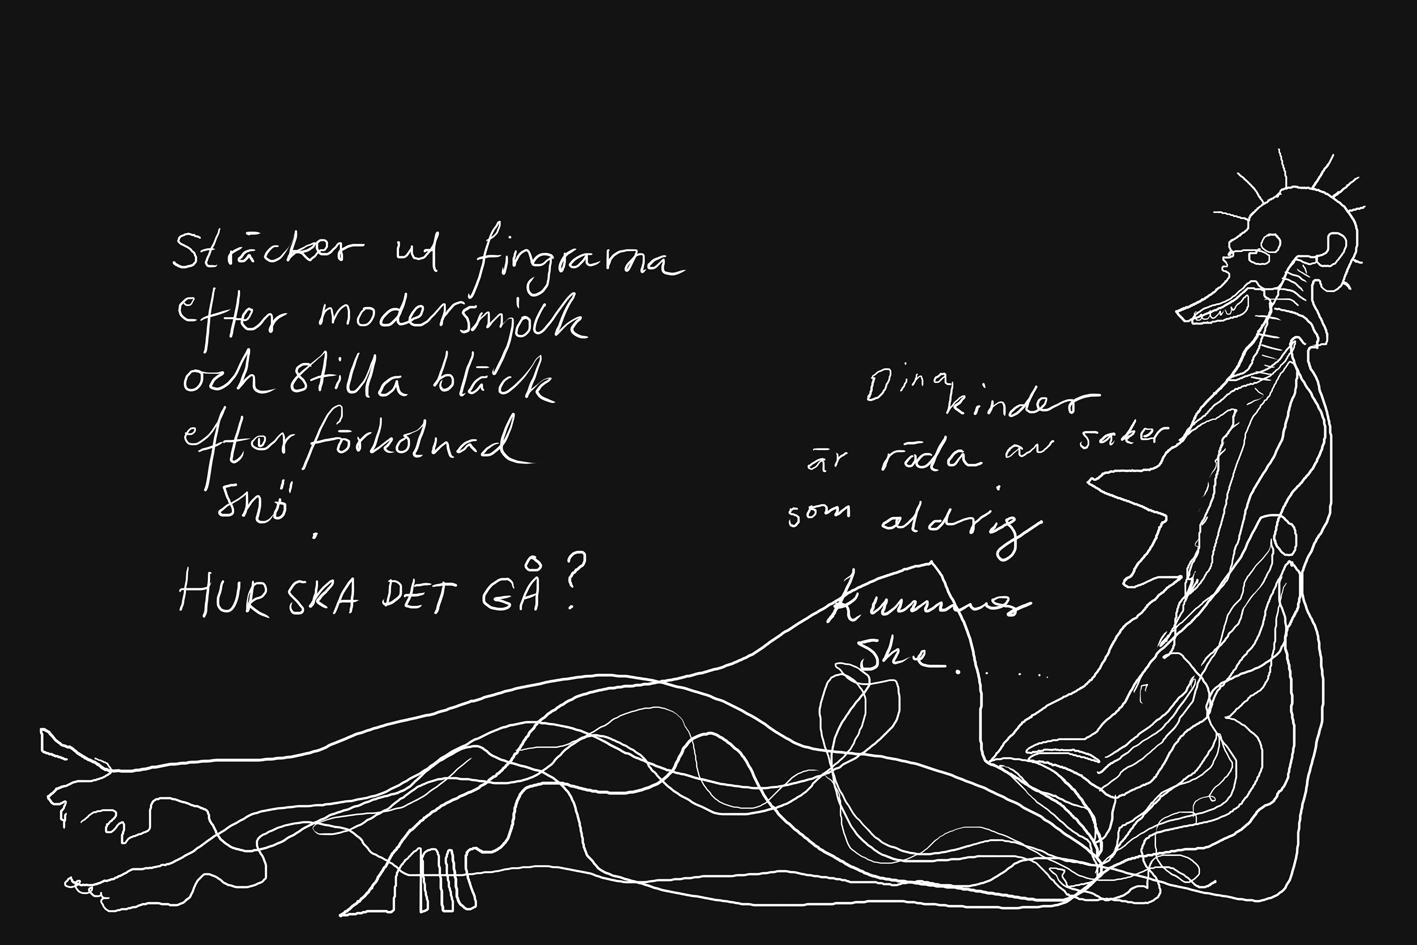 Sträcker ut fingrarna
efter modersmjölk
och stilla bläck
efter förkolnad
snö.
HUR SKA DET GÅ?
Dina kinder
är röda av saker
som aldrig
kummer
ske. . . . . .